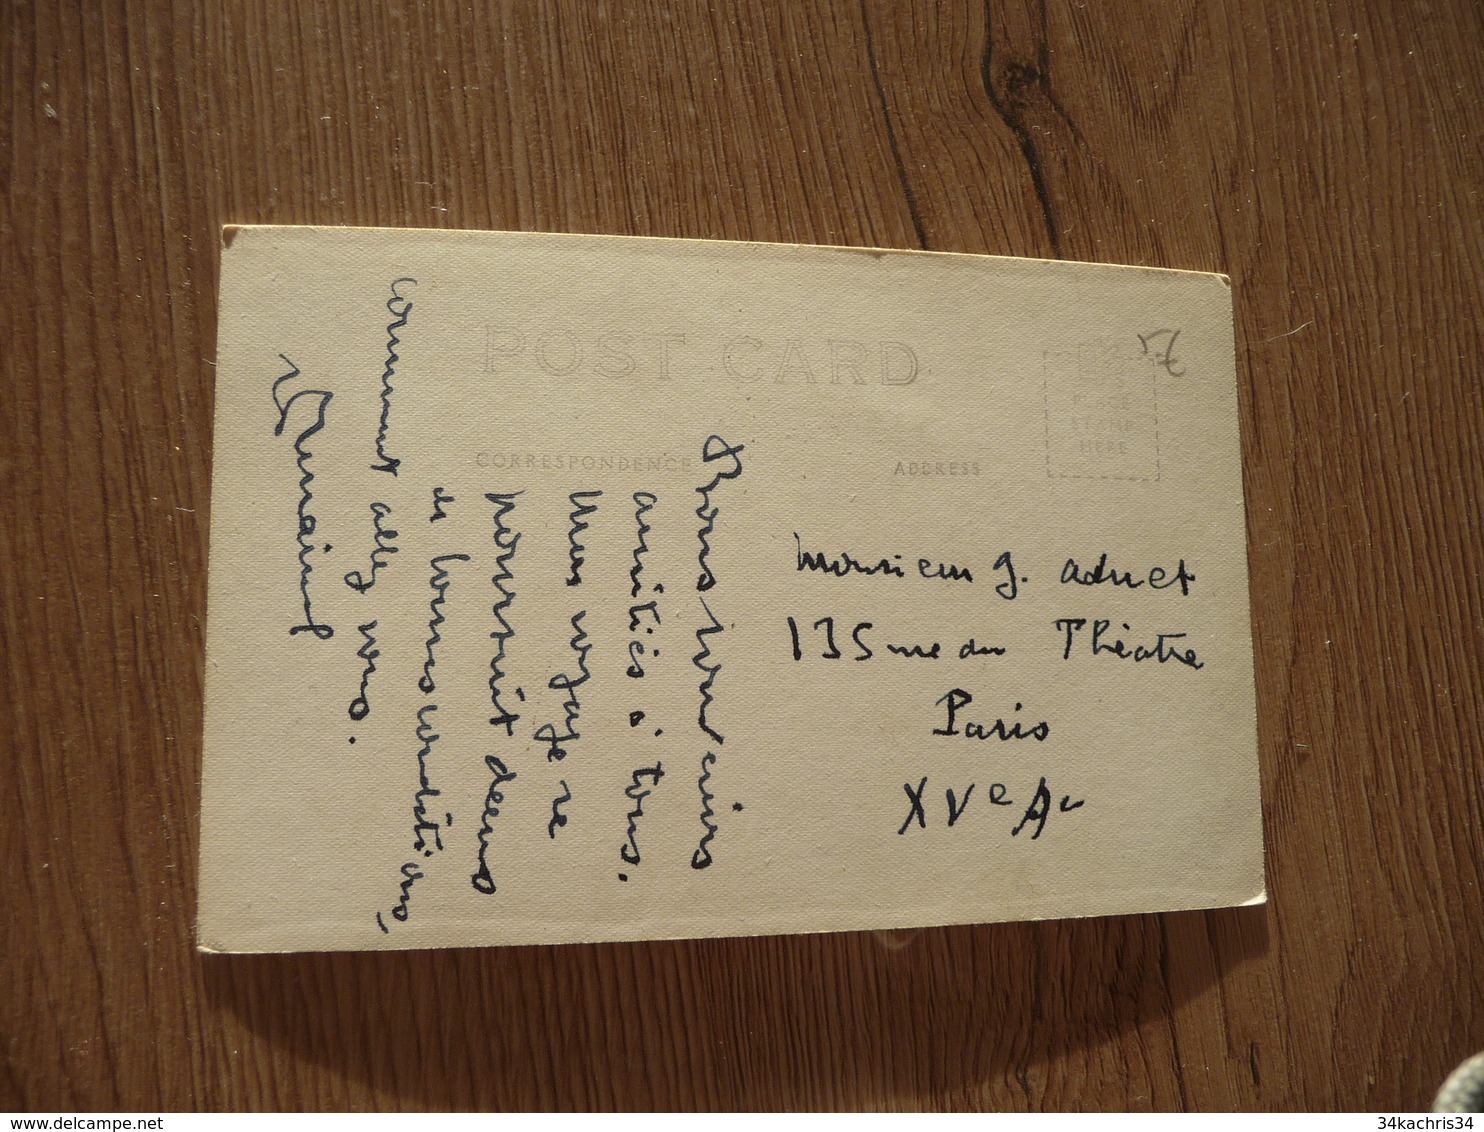 POST CARD
CORRESPONDENCE
ADDRESS
PLACE
HERE
Bons souvenirs
amitiés à tous.
mon voyage se
poursuit dans
de bonnes conditions,
comment allez vous.
Monsieur J. Aduet
135 rue du Théatre
Paris
XVe Ar
34kachris34